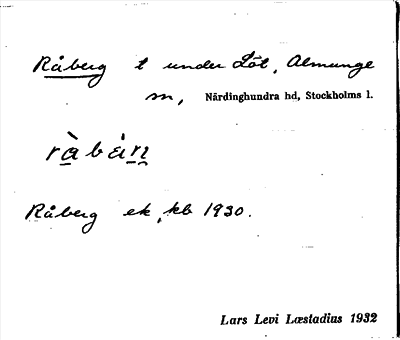 Råberg t under Löt, Almunge
sn, Närdinghundra hd, Stockholms l.
Råberg ek, kb 1930.
Lars Levi Læstadius 1932